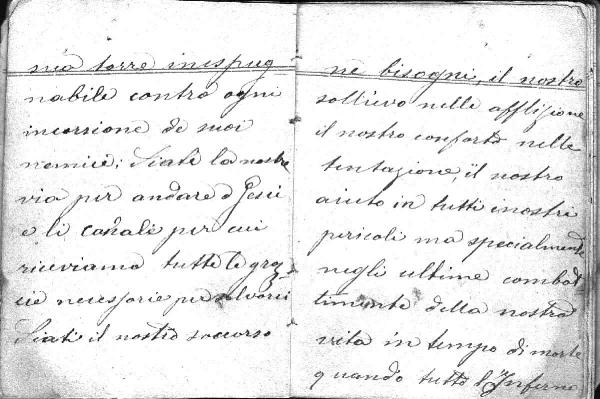 nia torre inespug
nabile contro ogni
incorsione de suoi
nemice; Siate la nostra
via per andare a Gesú
e li canali per cui
riceviamo tutte le gra
cie necessarie per salvarci
Siati il nostro soccorso
ne bisogni, il nostro
sollievo nelle afflizione
il nostro conforto nelle
tentazione, il nostro
aiuto in tutti i nostri
pericoli ma specialmente
negli ultime combat
timente della nostra
vita in tempo di morte
quando tutto l'Inferno